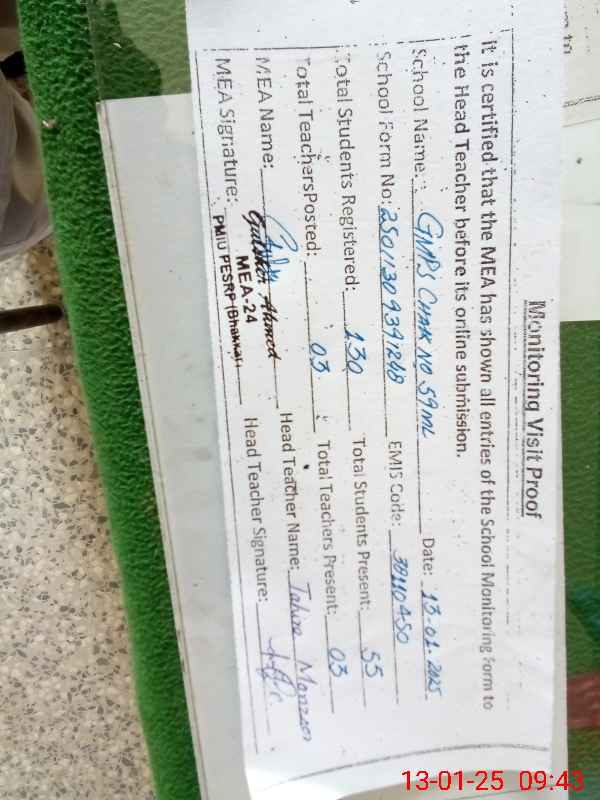 Monitoring Visit Proof
it is certified that the MEA has shown all entries of the School Monitoring Form to
the Head Teacher before its online submission.
School Name: GMPS CHAK NO 59 ML Date: 13-01-2025
School Form No: EMIS Code: 38110450
Total Students Registered: 130 Total Students Present: 55
Total Teachers Posted: 03 Total Teachers Present: 03
MEA Name: Ahmed Head Teacher Name: Tahira Manzoor
MEA Signature: Head Teacher Signature:
MEA-24
PMIU PESRP (Bhakkar)
13-01-25 09:43